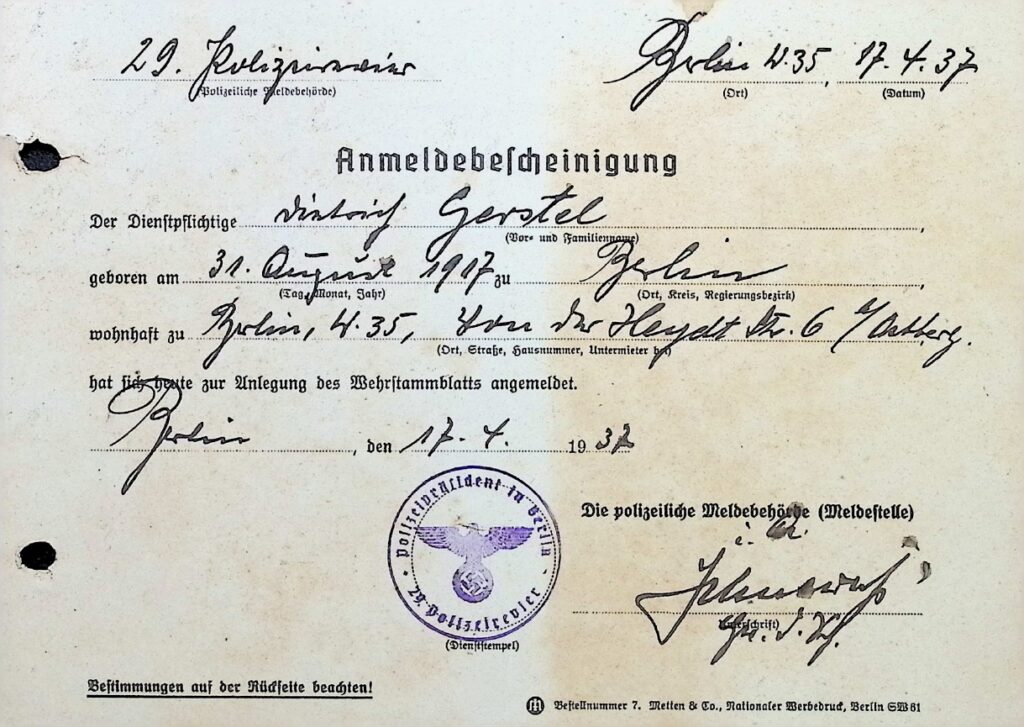 29. Polizeirevier
(Polizeiliche Meldebehörde)
Berlin W.35, 17.4.37
(Ort) (Datum)
Anmeldebescheinigung
Der Dienstpflichtige Dietrich Gerstel,
(Vor- und Familienname)
geboren am 31. August 1917 zu Berlin,
(Tag, Monat, Jahr) (Ort, Kreis, Regierungsbezirk)
wohnhaft zu Berlin, W.35, Von der Heydt Str. 6
(Ort, Straße, Hausnummer, Untermieter bei)
hat sich heute zur Anlegung des Wehrstammblatts angemeldet.
Berlin, den 17.4. 1937
Polizeipräsident in Berlin
29. Polizeirevier
(Dienststempel)
Die polizeiliche Meldebehörde (Meldestelle)
i. A.
(Unterschrift)
Bestimmungen auf der Rückseite beachten!
m Bestellnummer 7. Metten & Co., Nationaler Werbedruck, Berlin SW 61